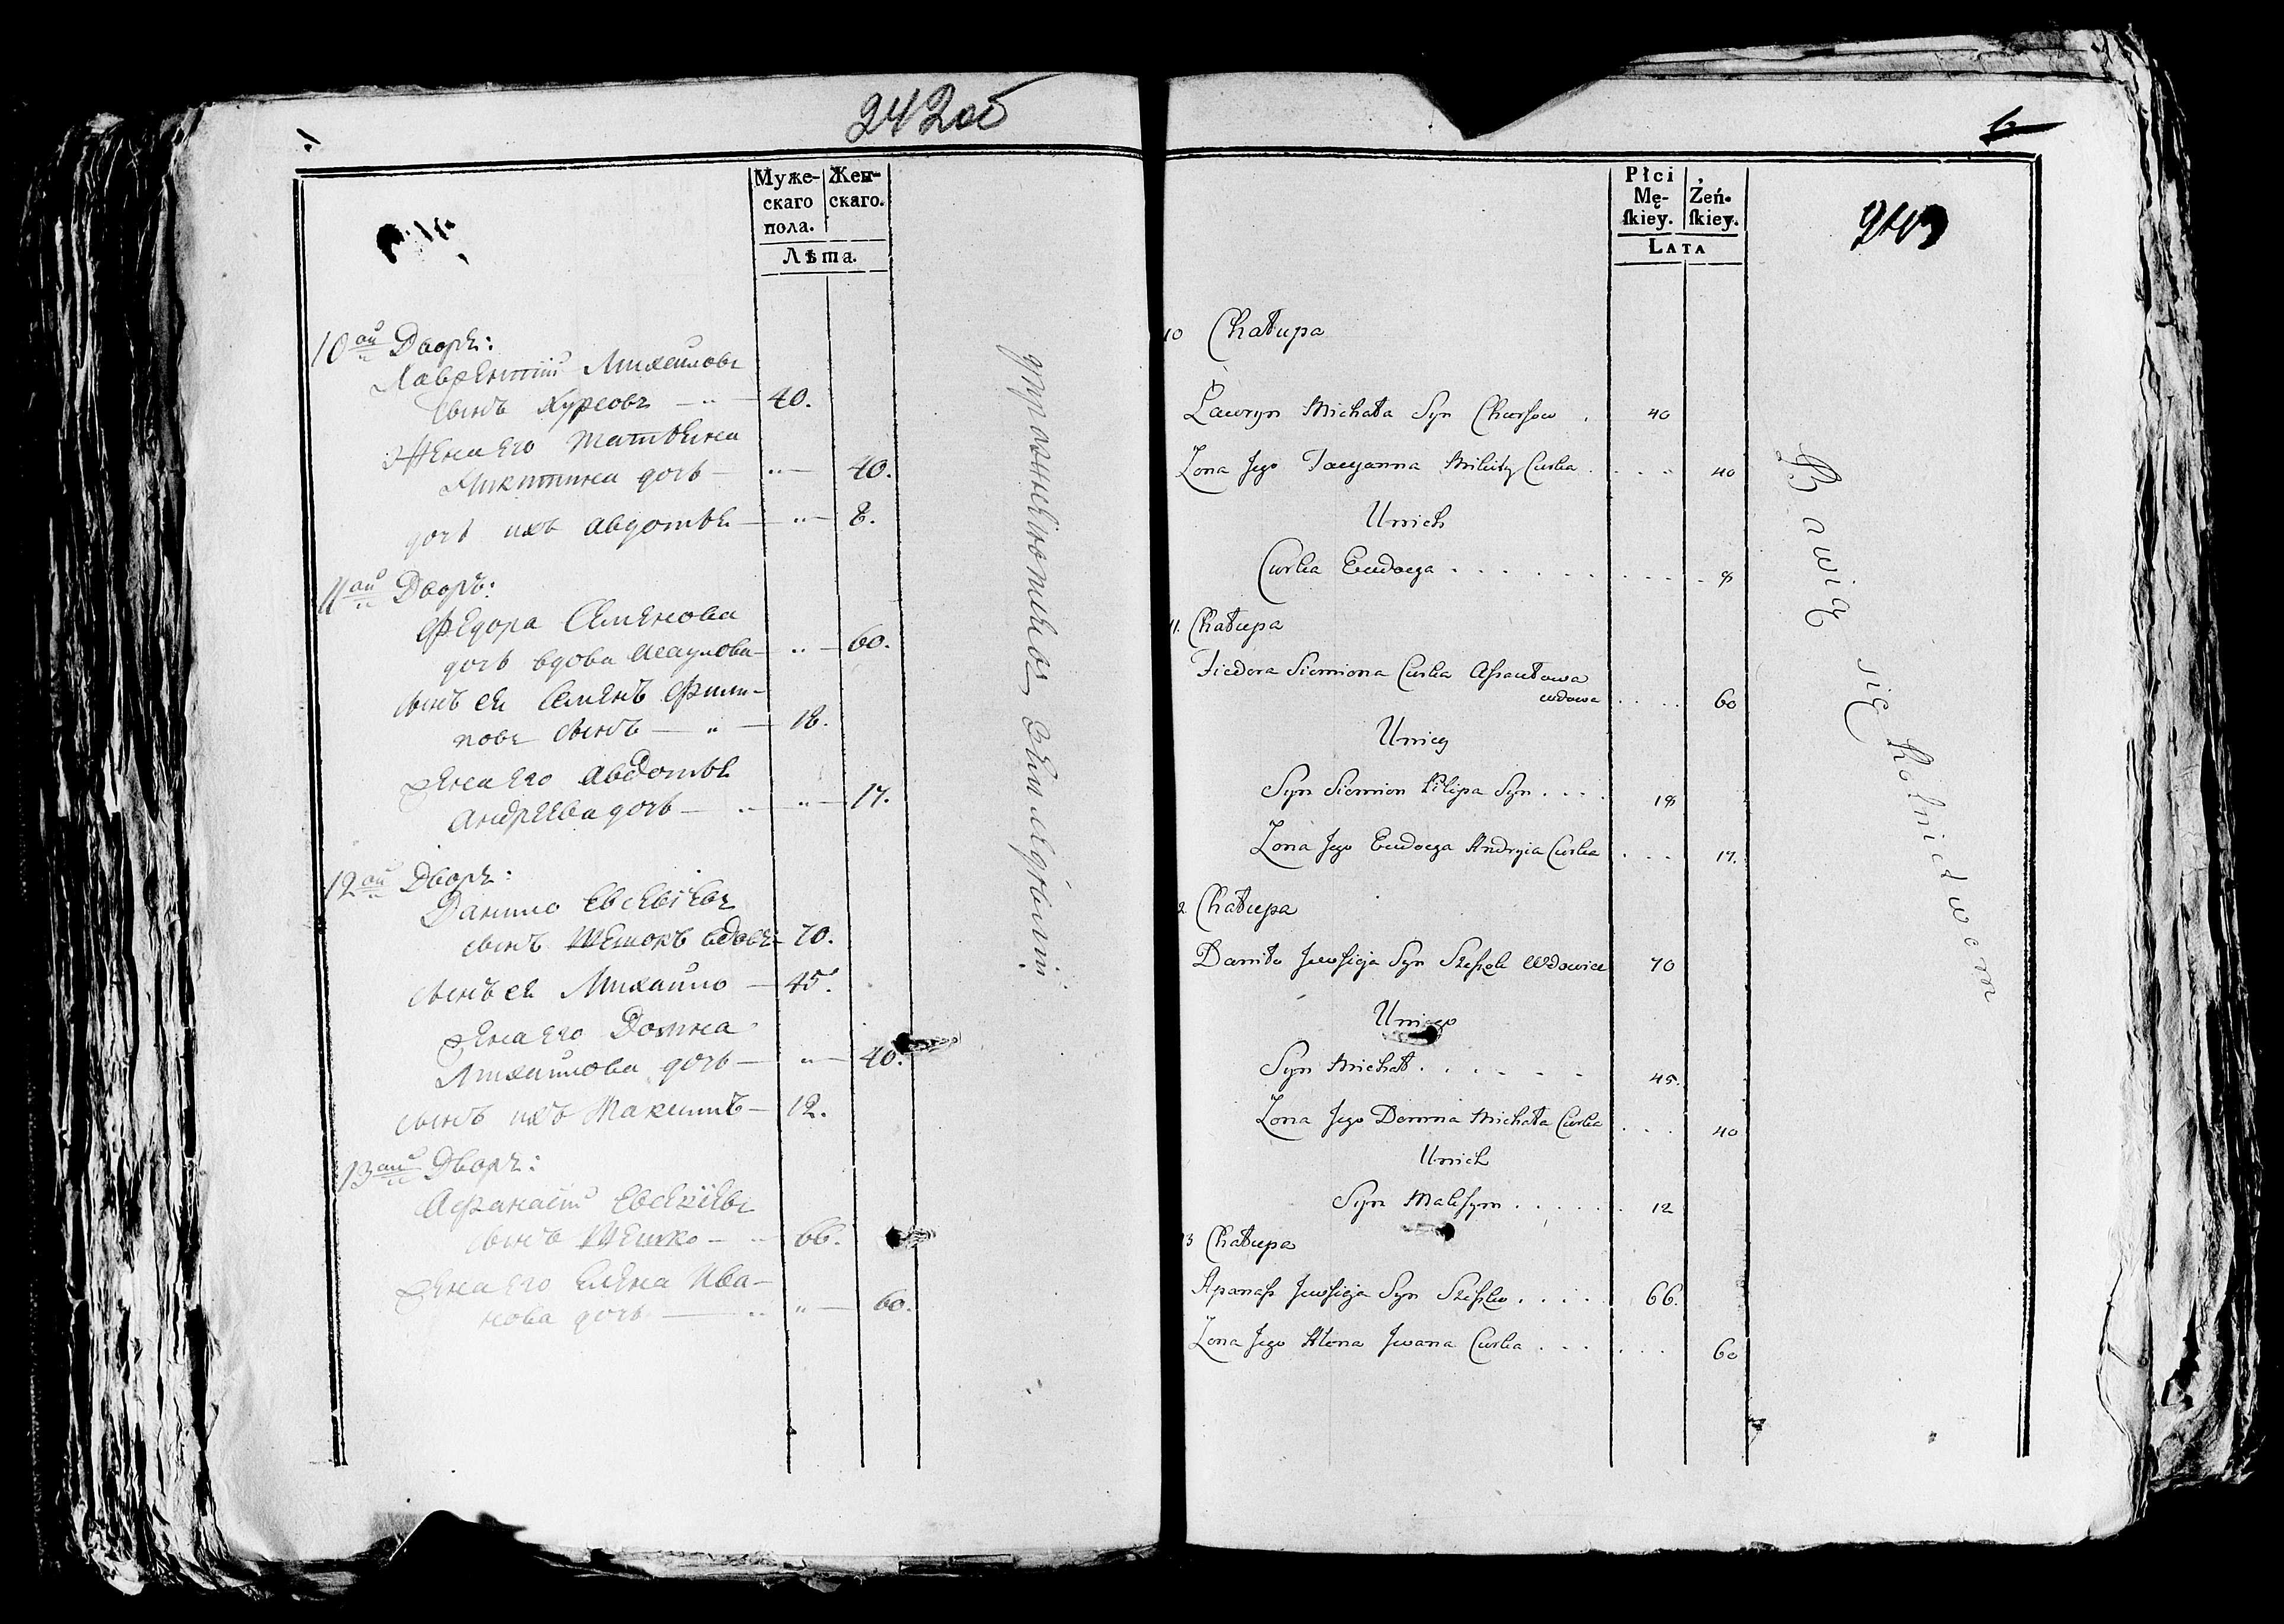 242об
Муже-
скаго
пола.
Жен-
скаго.
Лѣта.
10ый Дворъ:
Лаврентій Михайловъ
сынъ Хурсовъ — 40.
Жена его Татьяна
Микитина дочь — 40.
дочь ихъ Авдотья — 8.
11ый Дворъ:
Федора Семенова
дочь вдова — 60.
сынъ ея Семенъ Фили-
повъ сынъ — " — 18.
Жена его Авдотья
Андреева дочь — 17.
12ый Дворъ:
Данило Евсевіевъ
сынъ Шешокъ вдовецъ 70.
сынъ ея Михайло — 45.
Жена его Домна
Михайлова дочь — 40.
сынъ ихъ Максимъ — 12.
13ый Дворъ:
Афанасій Евсевіевъ
сынъ Шешко — 66.
Жена его Елена Ива-
нова дочь — " — 60.
упражненіе имеютъ, въ земледѣліи
6
243
Płci
Mę-
skiey.
Żeń-
skiey.
LATA
10 Chałupa
Ławryn Michała Syn Chursow . 40
Zona Jego Tacyanna Mikity Curka . . . . 40
Unich
Curka Eudocya . . . . . . . . . . 8
11. Chałupa
Fiedora Siemiona Curka Assautowa
wdowa . . . . 60
Uniey
Syn Siemion Filipa Syn . . . . 18
Zona Jego Eudocya Andryia Curka . . . 17.
2 Chałupa
Daniło Jewsieja Syn Szeszok Wdowiec 70
Uniego
Syn Michał . . . . . . 45.
Zona Jego Domna Michała Curka . . . 40
Unich
Syn Maksym . . . . . . 12
13 Chałupa
Apanass Jewsieja Syn Szeszko . . . . 66.
Zona Jego Alona Jwana Curka . . . . . . 60
Bawią się Rolnictwem